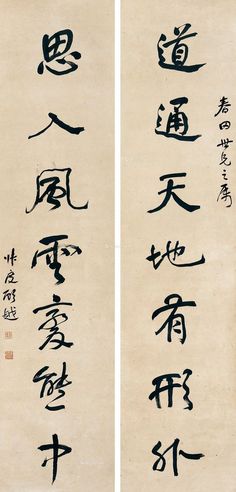 道通天地有形外
春田世兄之属
思入風雲變態中